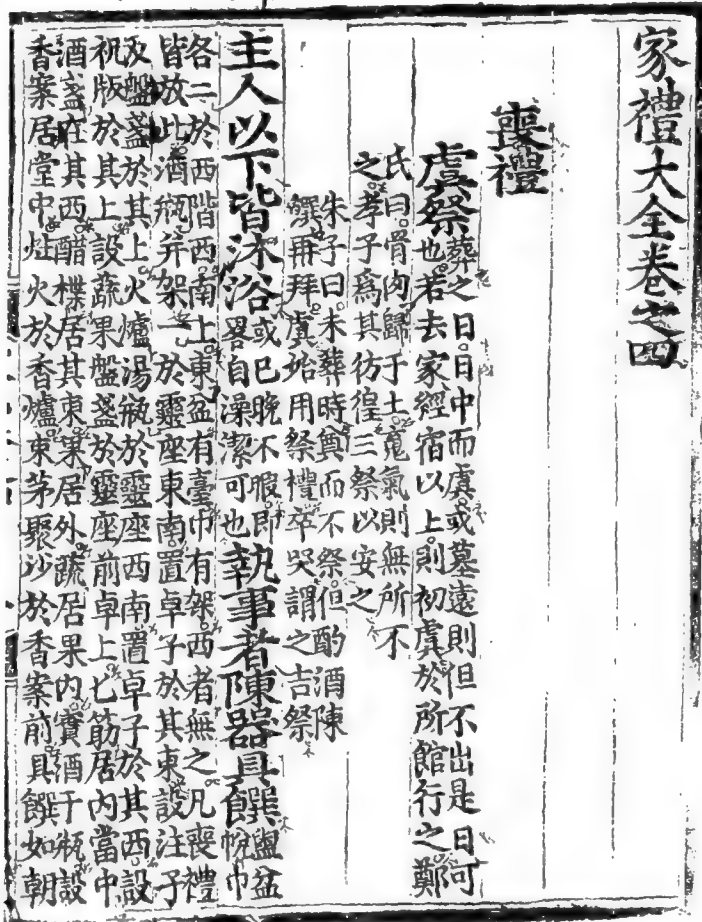 家禮大全卷之四
喪禮
虞祭
葬之日日中而虞或墓遠則但不出是日可
也若去家經宿以上則初虞於所館行之鄭
氏曰骨肉歸于土䰟氣則無所不
之孝子爲其彷徨三祭以安之
朱子曰未葬時奠而不祭但酌酒陳
饌再拜虞始用祭禮卒哭謂之吉祭
主人以下皆沐浴
或已晚不暇即
畧自澡潔可也
執事者陳器具饌
盥盆
帨巾
各二於西階西南上東盆有臺巾有架西者無之凡喪禮
皆放此酒瓶并架一於靈座東南置卓子於其東設注子
及盤盞於其上火爐湯瓶於靈座西南置卓子於其西設
祝版於其上設蔬果盤盞於靈座前卓上匕筯居內當中
酒盞在其西醋楪居其東果居外蔬居果內實酒于瓶設
香案居堂中炷火於香爐束茅聚沙於香案前具饌如朝